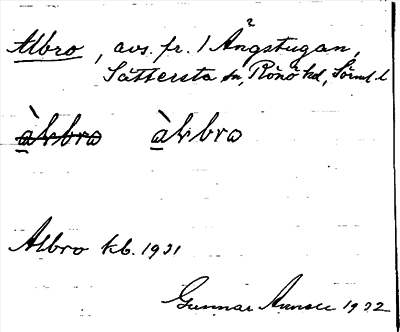 Albro, avs. fr. 1 Ängstugan,
Sättersta sn, Rönö hd, Sörml. l
àlbro
Albro kb. 1931
Gunnar 1932